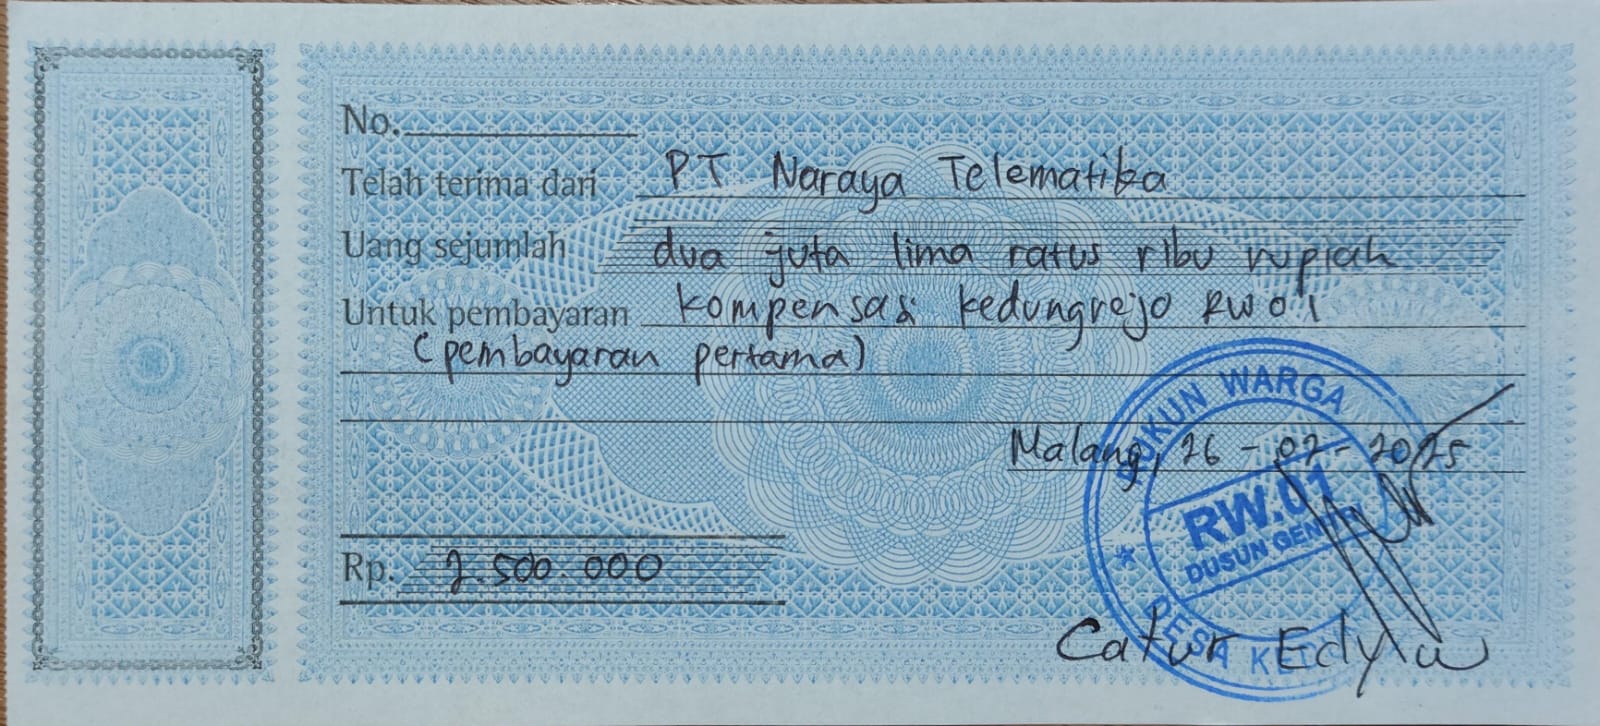 No.
Telah terima dari PT Naraya Telematika
Uang sejumlah dua juta lima ratus ribu rupiah
Untuk pembayaran kompensasi kedungrejo RW 01
(pembayaran pertama)
Malang, 26-02-2025
RUKUN WARGA
RW.01
DUSUN
DESA
Rp. 2.500.000
Catur